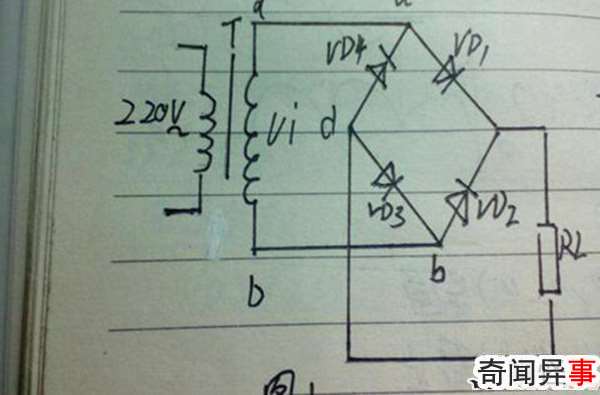 a
T
VD4
VD1
220V
~
Vi
d
VD3
VD2
b
b
RL
图1
奇闻异事